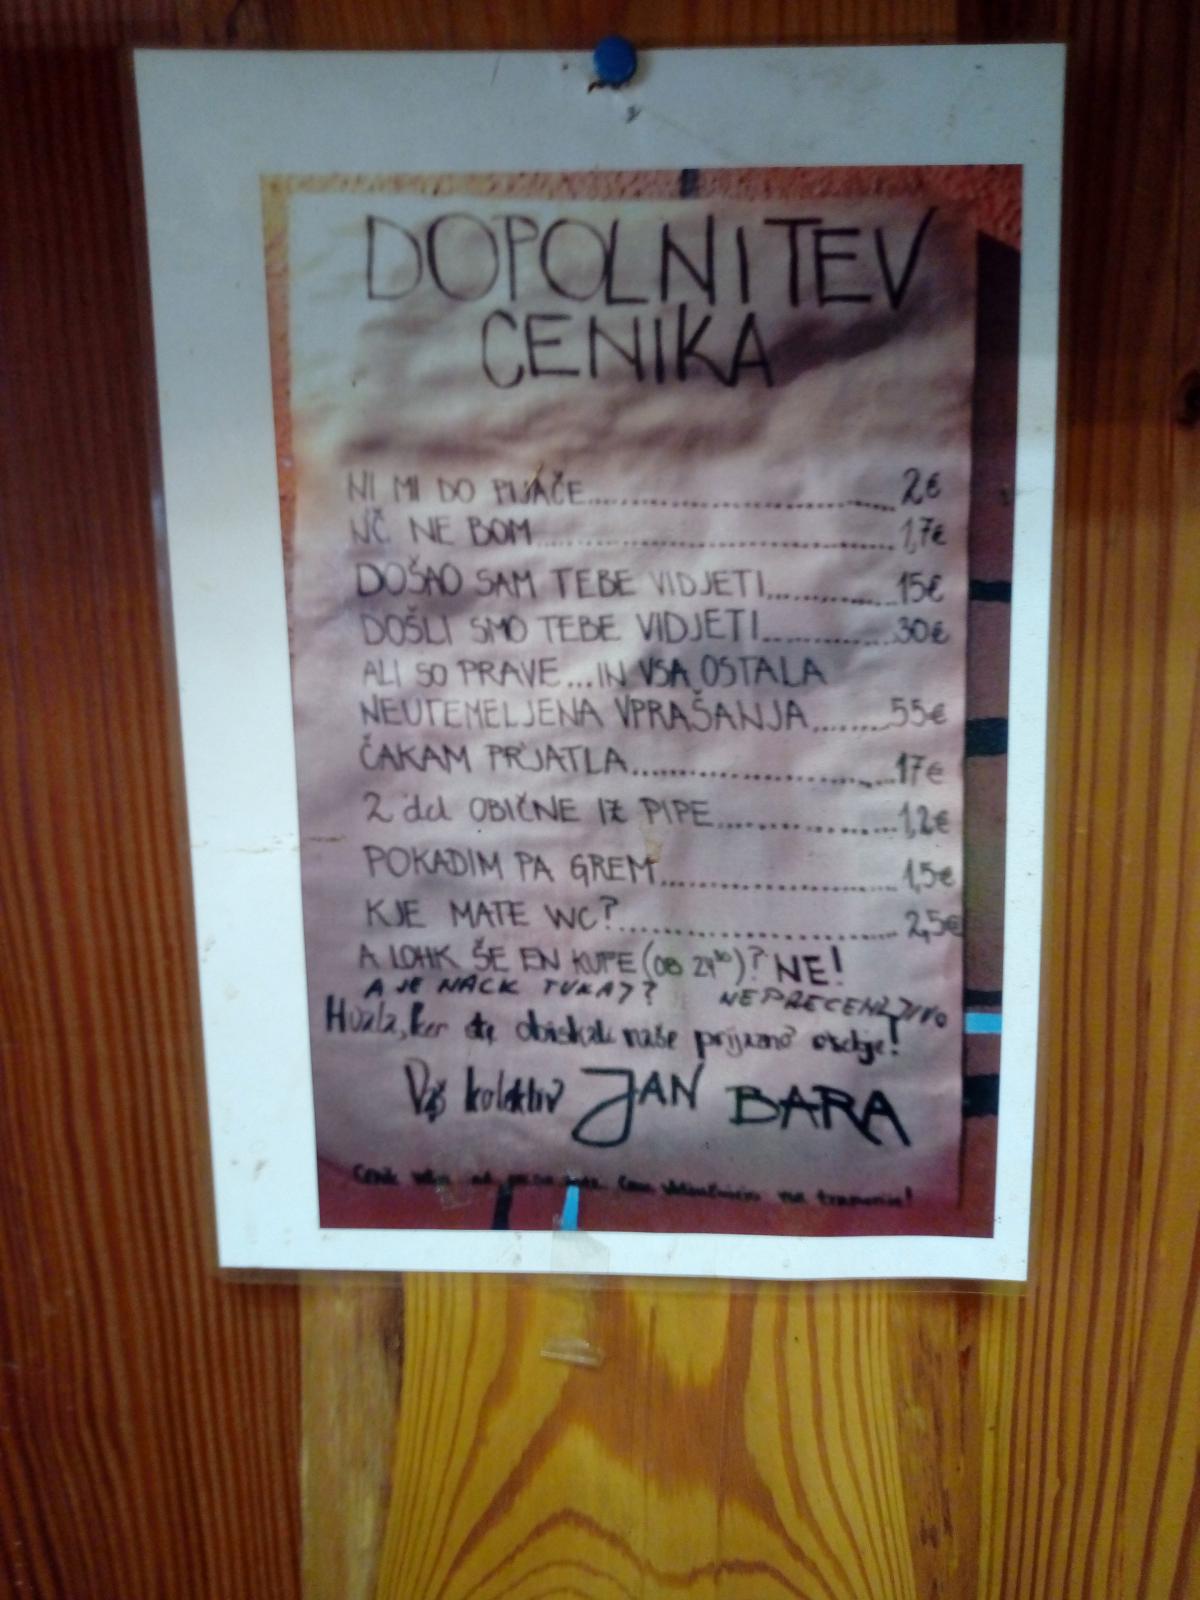 DOPOLNITEV
CENIKA
NI MI DO PIJAČE.......... 2€
NČ NE BOM.......... 1,7€
DOŠAO SAM TEBE VIDJETI.......... 15€
DOŠLI SMO TEBE VIDJETI.......... 30€
ALI SO PRAVE...IN VSA OSTALA
NEUTEMELJENA VPRAŠANJA.......... 55€
ČAKAM PR'JATLA.......... 17€
2 dcl OBIČNE IZ PIPE.......... 1,2€
POKADIM PA GREM.......... 1,5€
KJE MATE WC?.......... 2,5€
A LOHK ŠE EN KUPE (OB 24³⁰)? NE!
A JE NACK TUKAJ? NEPRECENLJIVO
Hvala, ker ste obiskali naše prijazno osebje!
Vaš kolektiv JAN BARA
Cenik velja od